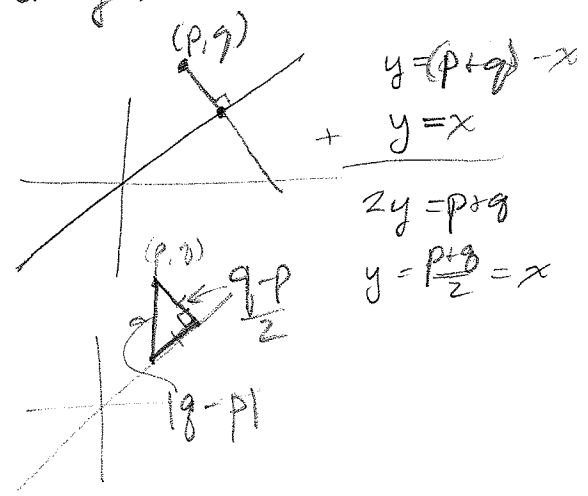 (p, q)
y = (p+q) - x
+ y = x
2y = p+q
y = \frac{p+q}{2} = x
(p, q)
\frac{q-p}{2}
|q - p|